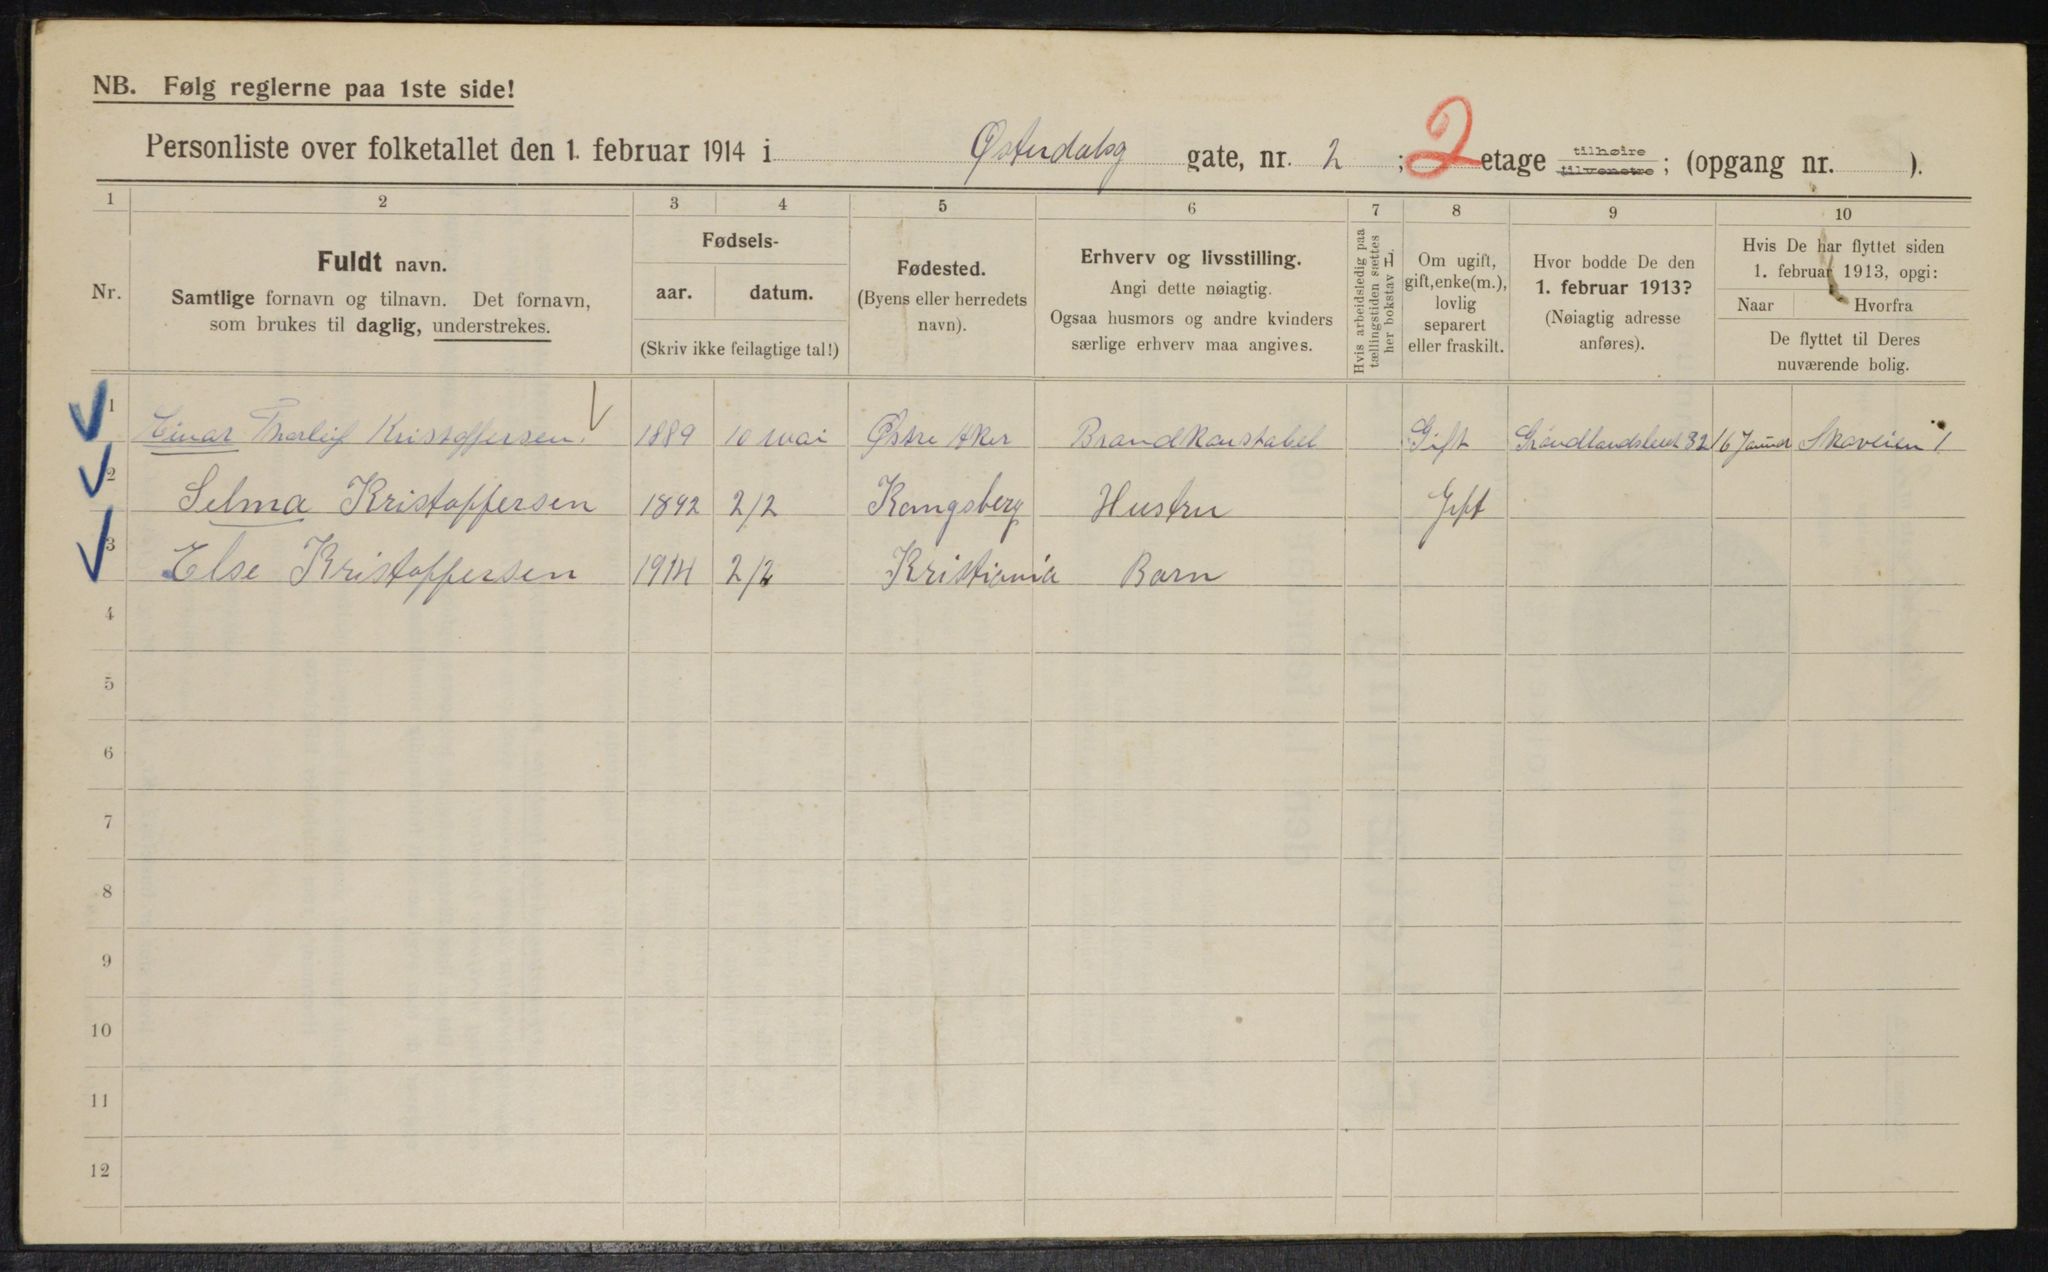 NB. Følg reglerne paa 1ste side!
Personliste over folketallet den 1. februar 1914 i Østerdalsg gate, nr. 2 ; 2 etage tilhøire tilvenstre ; (opgang nr. ).
1 2 3 4 5 6 7 8 9 10
Nr.
Fuldt navn.
Samtlige fornavn og tilnavn. Det fornavn,
som brukes til daglig, understrekes.
Fødsels-
aar. datum.
(Skriv ikke feilagtige tal!)
Fødested.
(Byens eller herredets
navn).
Erhverv og livsstilling.
Angi dette nøiagtig.
Ogsaa husmors og andre kvinders
særlige erhverv maa angives.
Hvis arbeidsledig paa
tællingstiden sættes
her bokstav L.
Om ugift,
gift, enke(m.),
lovlig
separert
eller fraskilt.
Hvor bodde De den
1. februar 1913?
(Nøiagtig adresse
anføres).
Hvis De har flyttet siden
1. februar 1913, opgi:
Naar Hvorfra
De flyttet til Deres
nuværende bolig.
1 Einar Thorleif Kristoffersen. 1889 10 mai Østre Aker Brandkonstabel Gift 32 16 Januar Skoveien 1
2 Selma Kristoffersen 1892 2/2 Kongsberg Hustru Gift
3 Else Kristoffersen 1914 2/2 Kristiania Barn
4
5
6
7
8
9
10
11
12